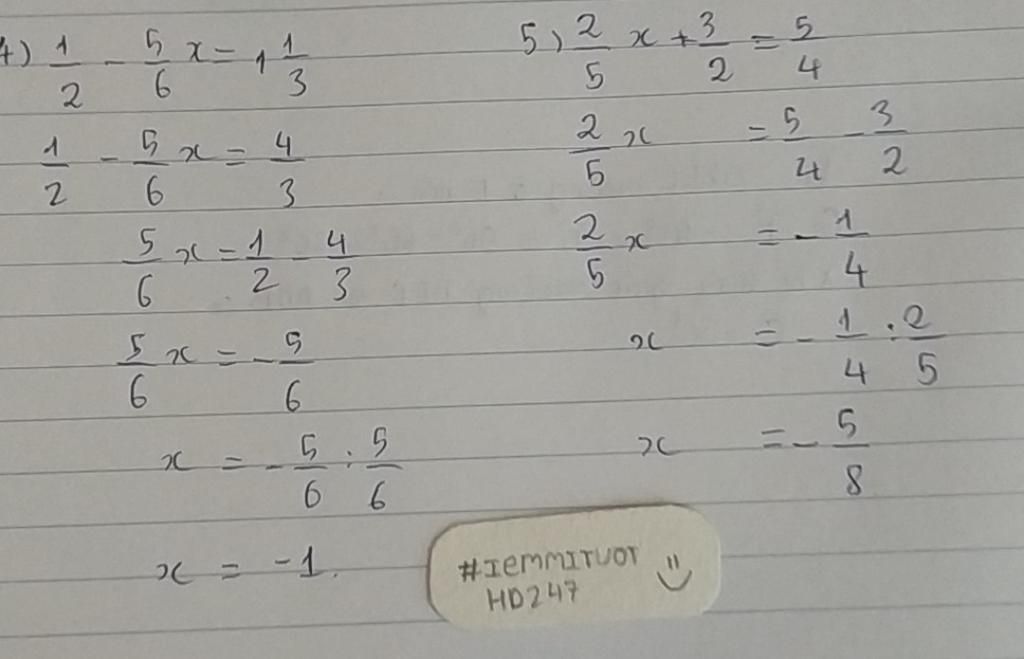 4) 1/2 - 5/6 x = 1 1/3
1/2 - 5/6 x = 4/3
5/6 x = 1/2 - 4/3
5/6 x = - 5/6
x = - 5/6 : 5/6
x = -1.
5) 2/5 x + 3/2 = 5/4
2/5 x = 5/4 - 3/2
2/5 x = - 1/4
x = - 1/4 : 2/5
x = - 5/8
#IEMMITUOT
HD247